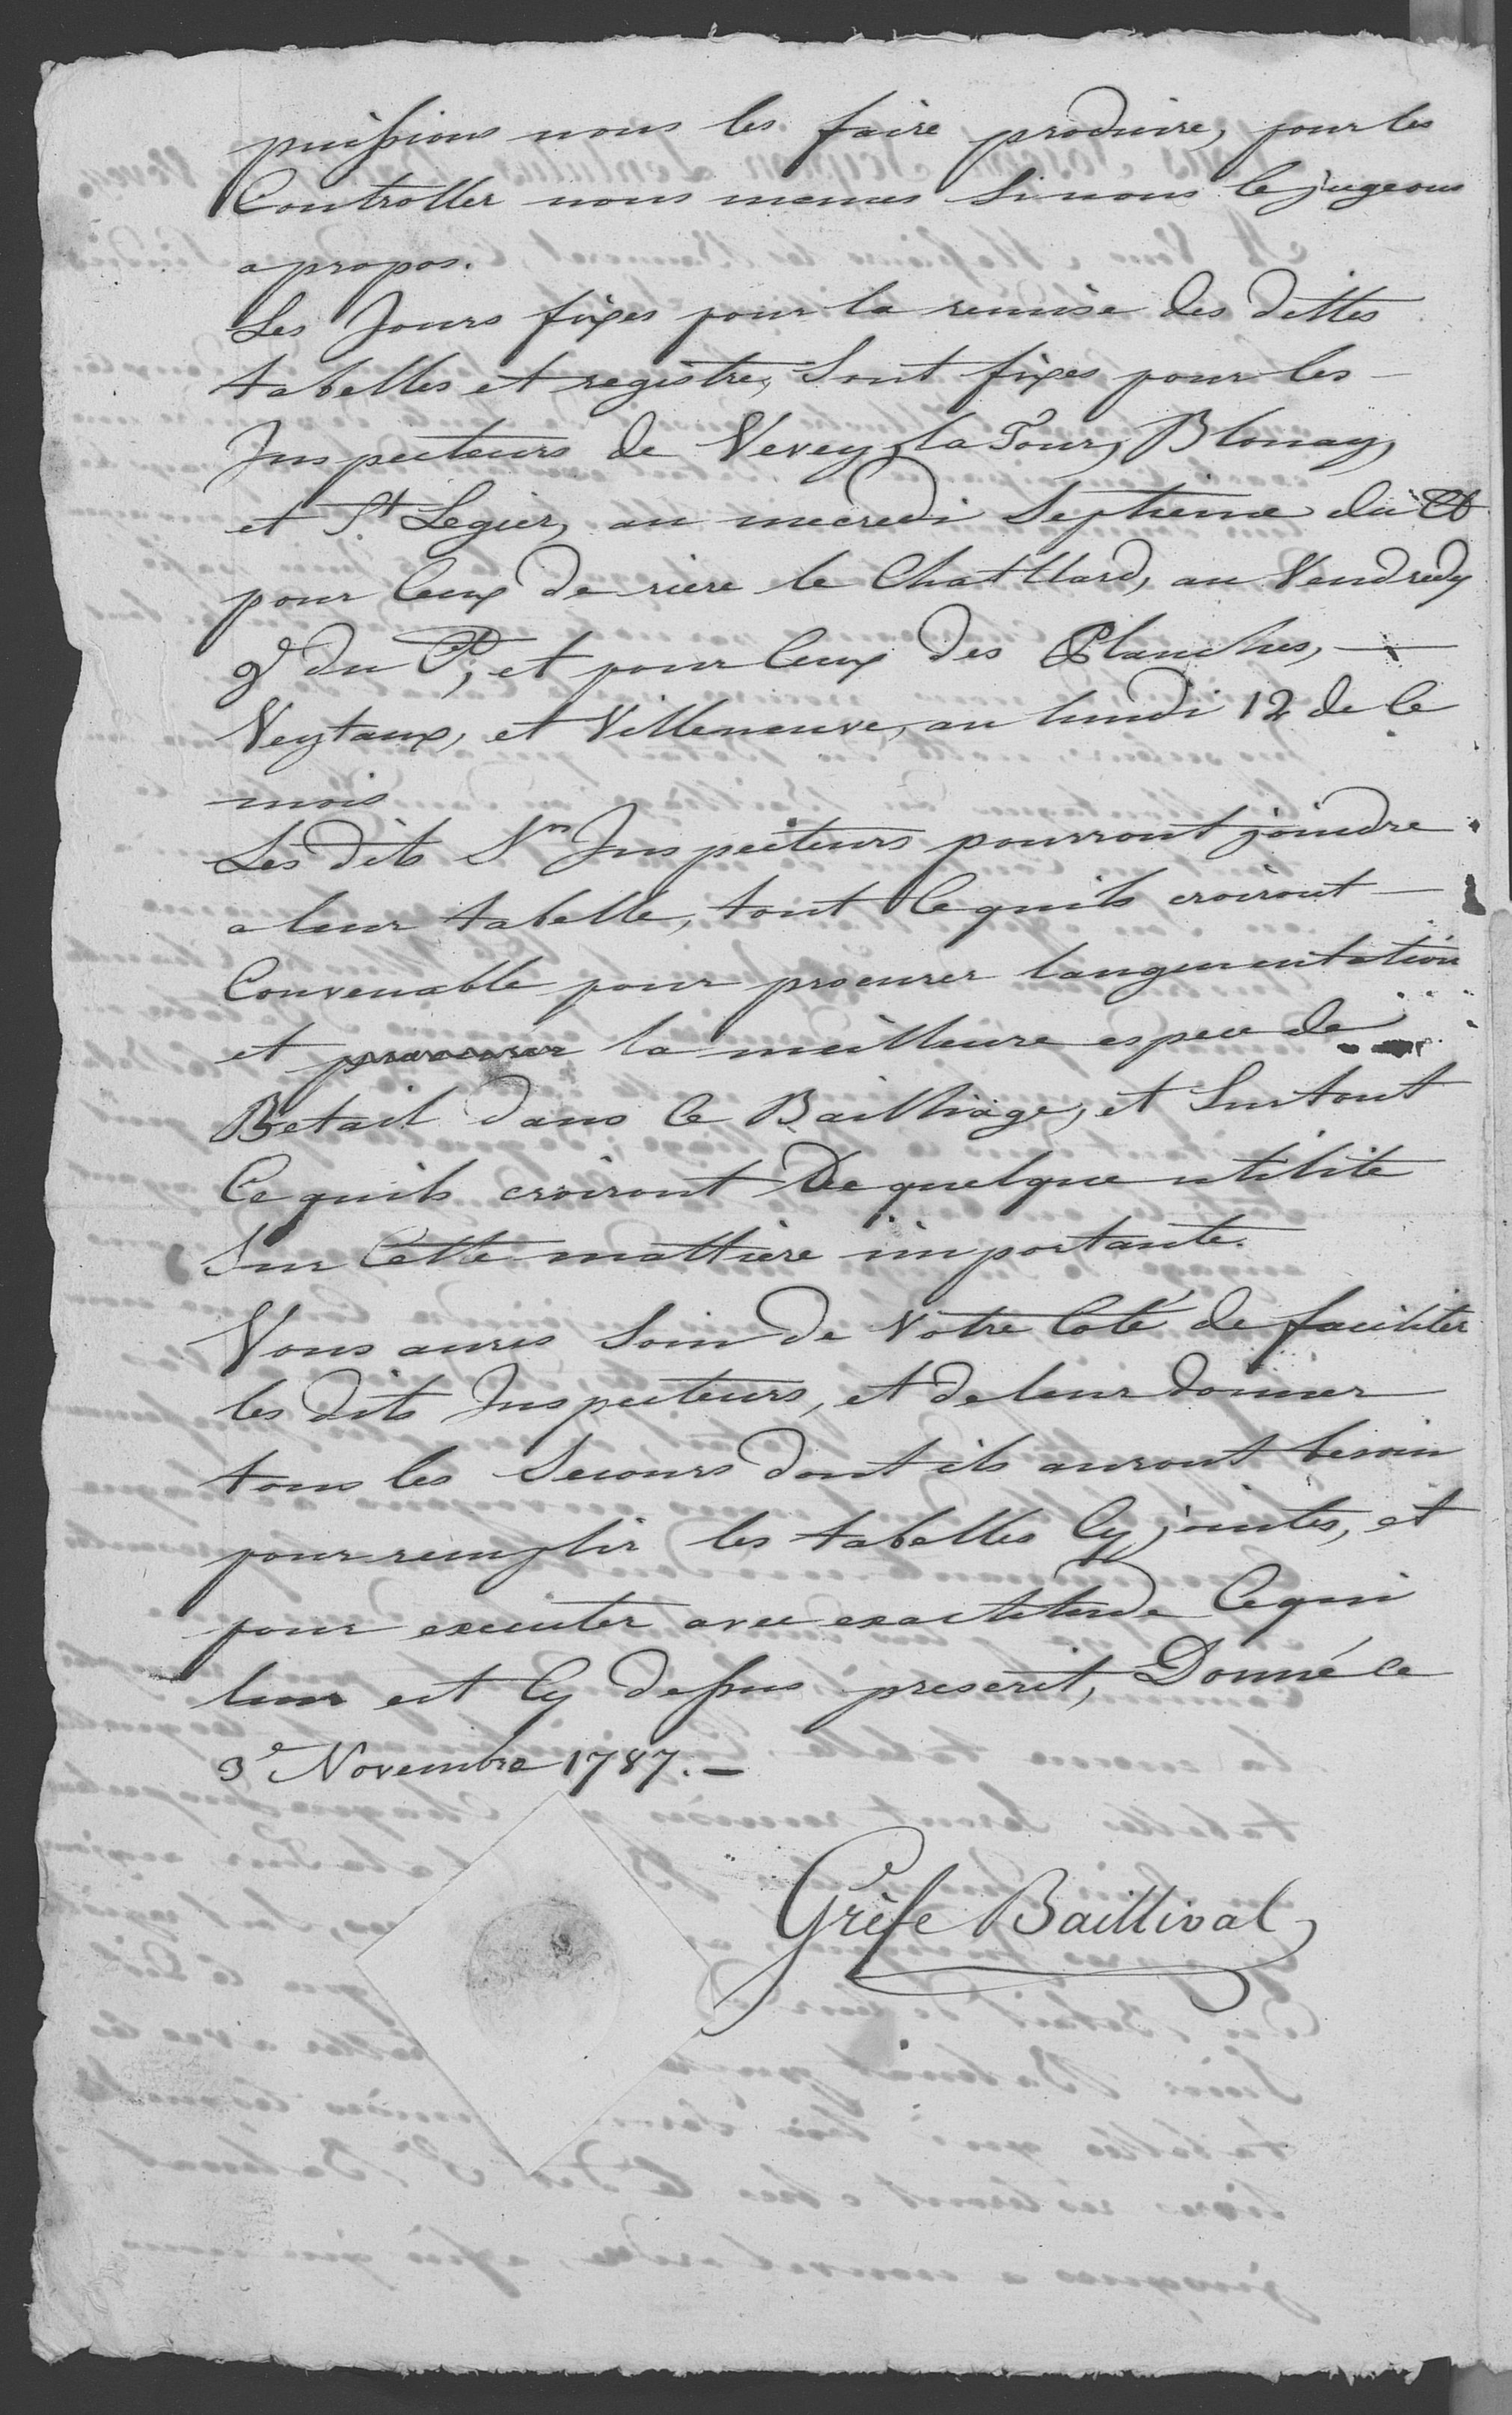 puissions nous les faire produire, pour les
Controller nous memes si nous le jugeons
apropos.
Les Jours fixes pour la remise des dittes
tabelles et registre, Sont fixes pour les
Inspecteurs de Vevey, la Tour, Blonay,
et St Legier, au mecredi Septieme du Ct
pour Ceux de riere le Chattlard, au Vendredy
9 du Ct, et pour Ceux des Planches,
Veytaux, et Villeneuve, au lundi 12 de Ce
mois
Les dits Srs Inspecteurs pourront joindre
a leur tabelle, tout Cequils croiront
Convenable pour procurer laugmentation
et la meilleure espece de
Betail dans Ce Bailliage, et Surtout
Cequils croiront De quelque utilite
Sur Cette mattiere importante.
Vous aures Soin de Votre Coté de faciliter
les dits Inspecteurs, et de leur donner
tous les Secours dont ils auront besoin
pour remplir les tabelles Cy jointes, et
pour executer avec exactitude Cequi
leur est Cy dessus prescrit, Donné ce
3e Novembre 1787.
Gréfe Baillival